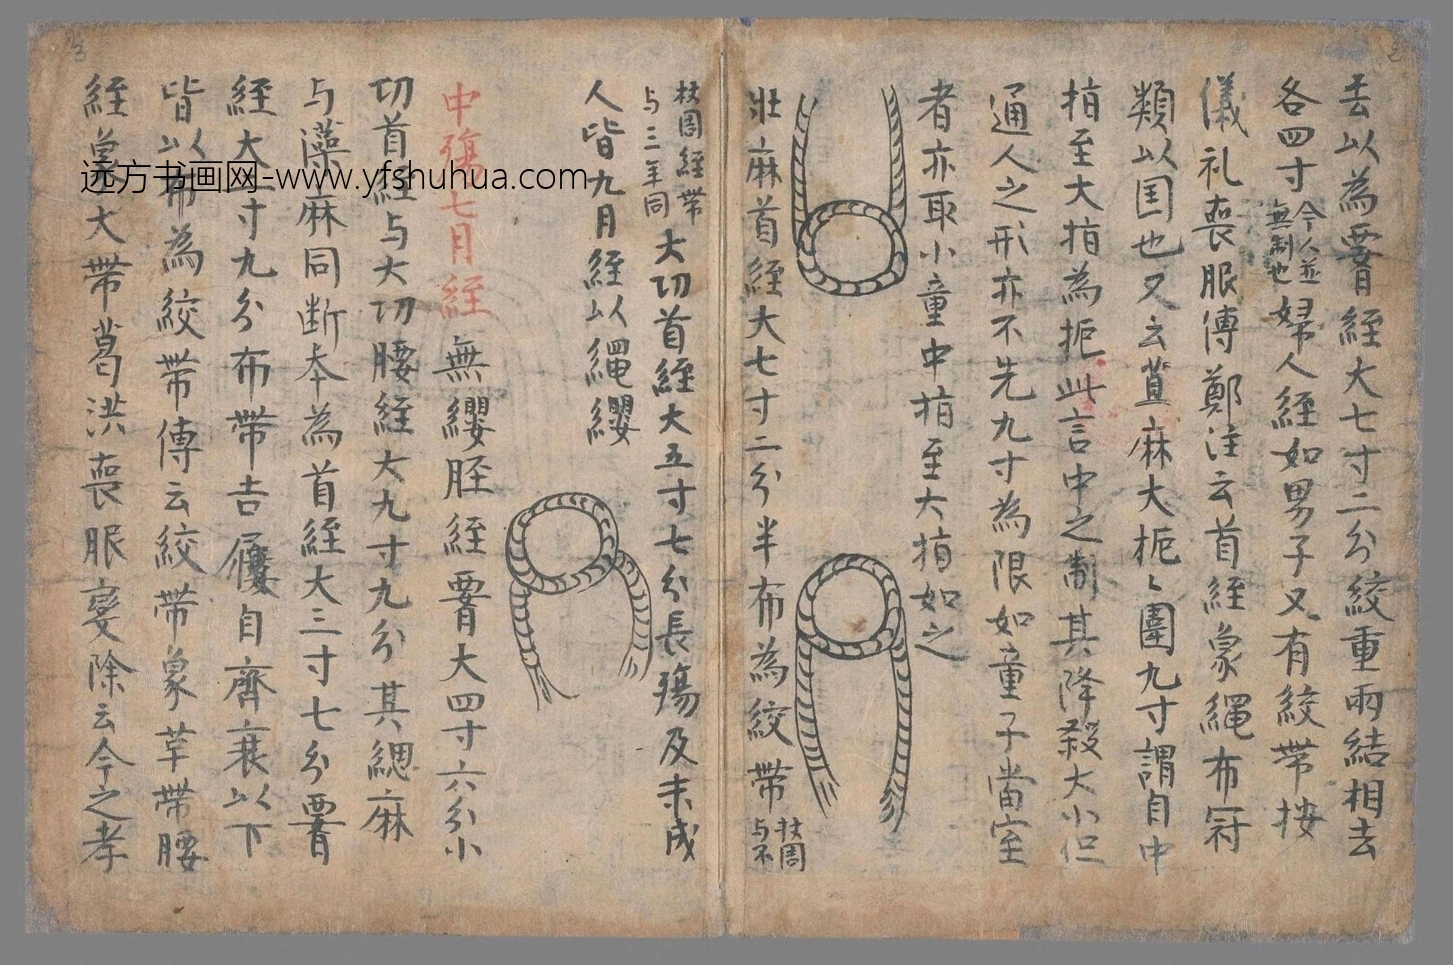 去以為䝨絰大七寸二分絞重兩結相去
各四寸今人並無制也婦人絰如男子又有絞帶按
儀礼喪服傳鄭注云首絰象繩布冠
類以圍也又云苴麻大枙〻圍九寸謂自中
指至大指為扼此言中之制其降殺大小但
通人之形亦不先九寸為限如童子當室
者亦取小童中指至大指如之
壯麻首絰大七寸二分半布為絞帶杖周与不
杖周絰帶与三年同大功首絰大五寸七分長殤及未成
人皆九月絰以繩纓
中殤七月絰無纓胵絰䝨大四寸六分小
切首絰与大切腰絰大九寸九分其總麻
与藻麻同断本為首絰大三寸七分䝨
絰大二寸九分布帶吉屨自齊衰以下
皆以布為絞帶傳云絞帶象革帶腰
絰象大帶葛洪喪服变除云今之孝
3
2
远方书画网-www.yfshuhua.com